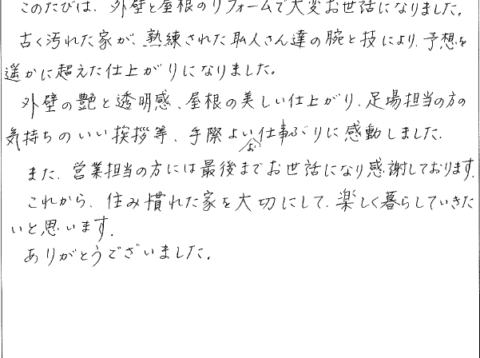 このたびは、外壁と屋根のリフォームで大変お世話になりました。
古く汚れた家が、熟練された職人さん達の腕と技により、予想を
遥かに超えた仕上がりになりました。
外壁の艶と透明感、屋根の美しい仕上がり、足場担当の方の
気持ちのいい挨拶等、手際よい仕事ぶりに感動しました。
また、営業担当の方には最後までお世話になり感謝しております。
これから、住み慣れた家を大切にして、楽しく暮らしていきた
いと思います。
ありがとうございました。